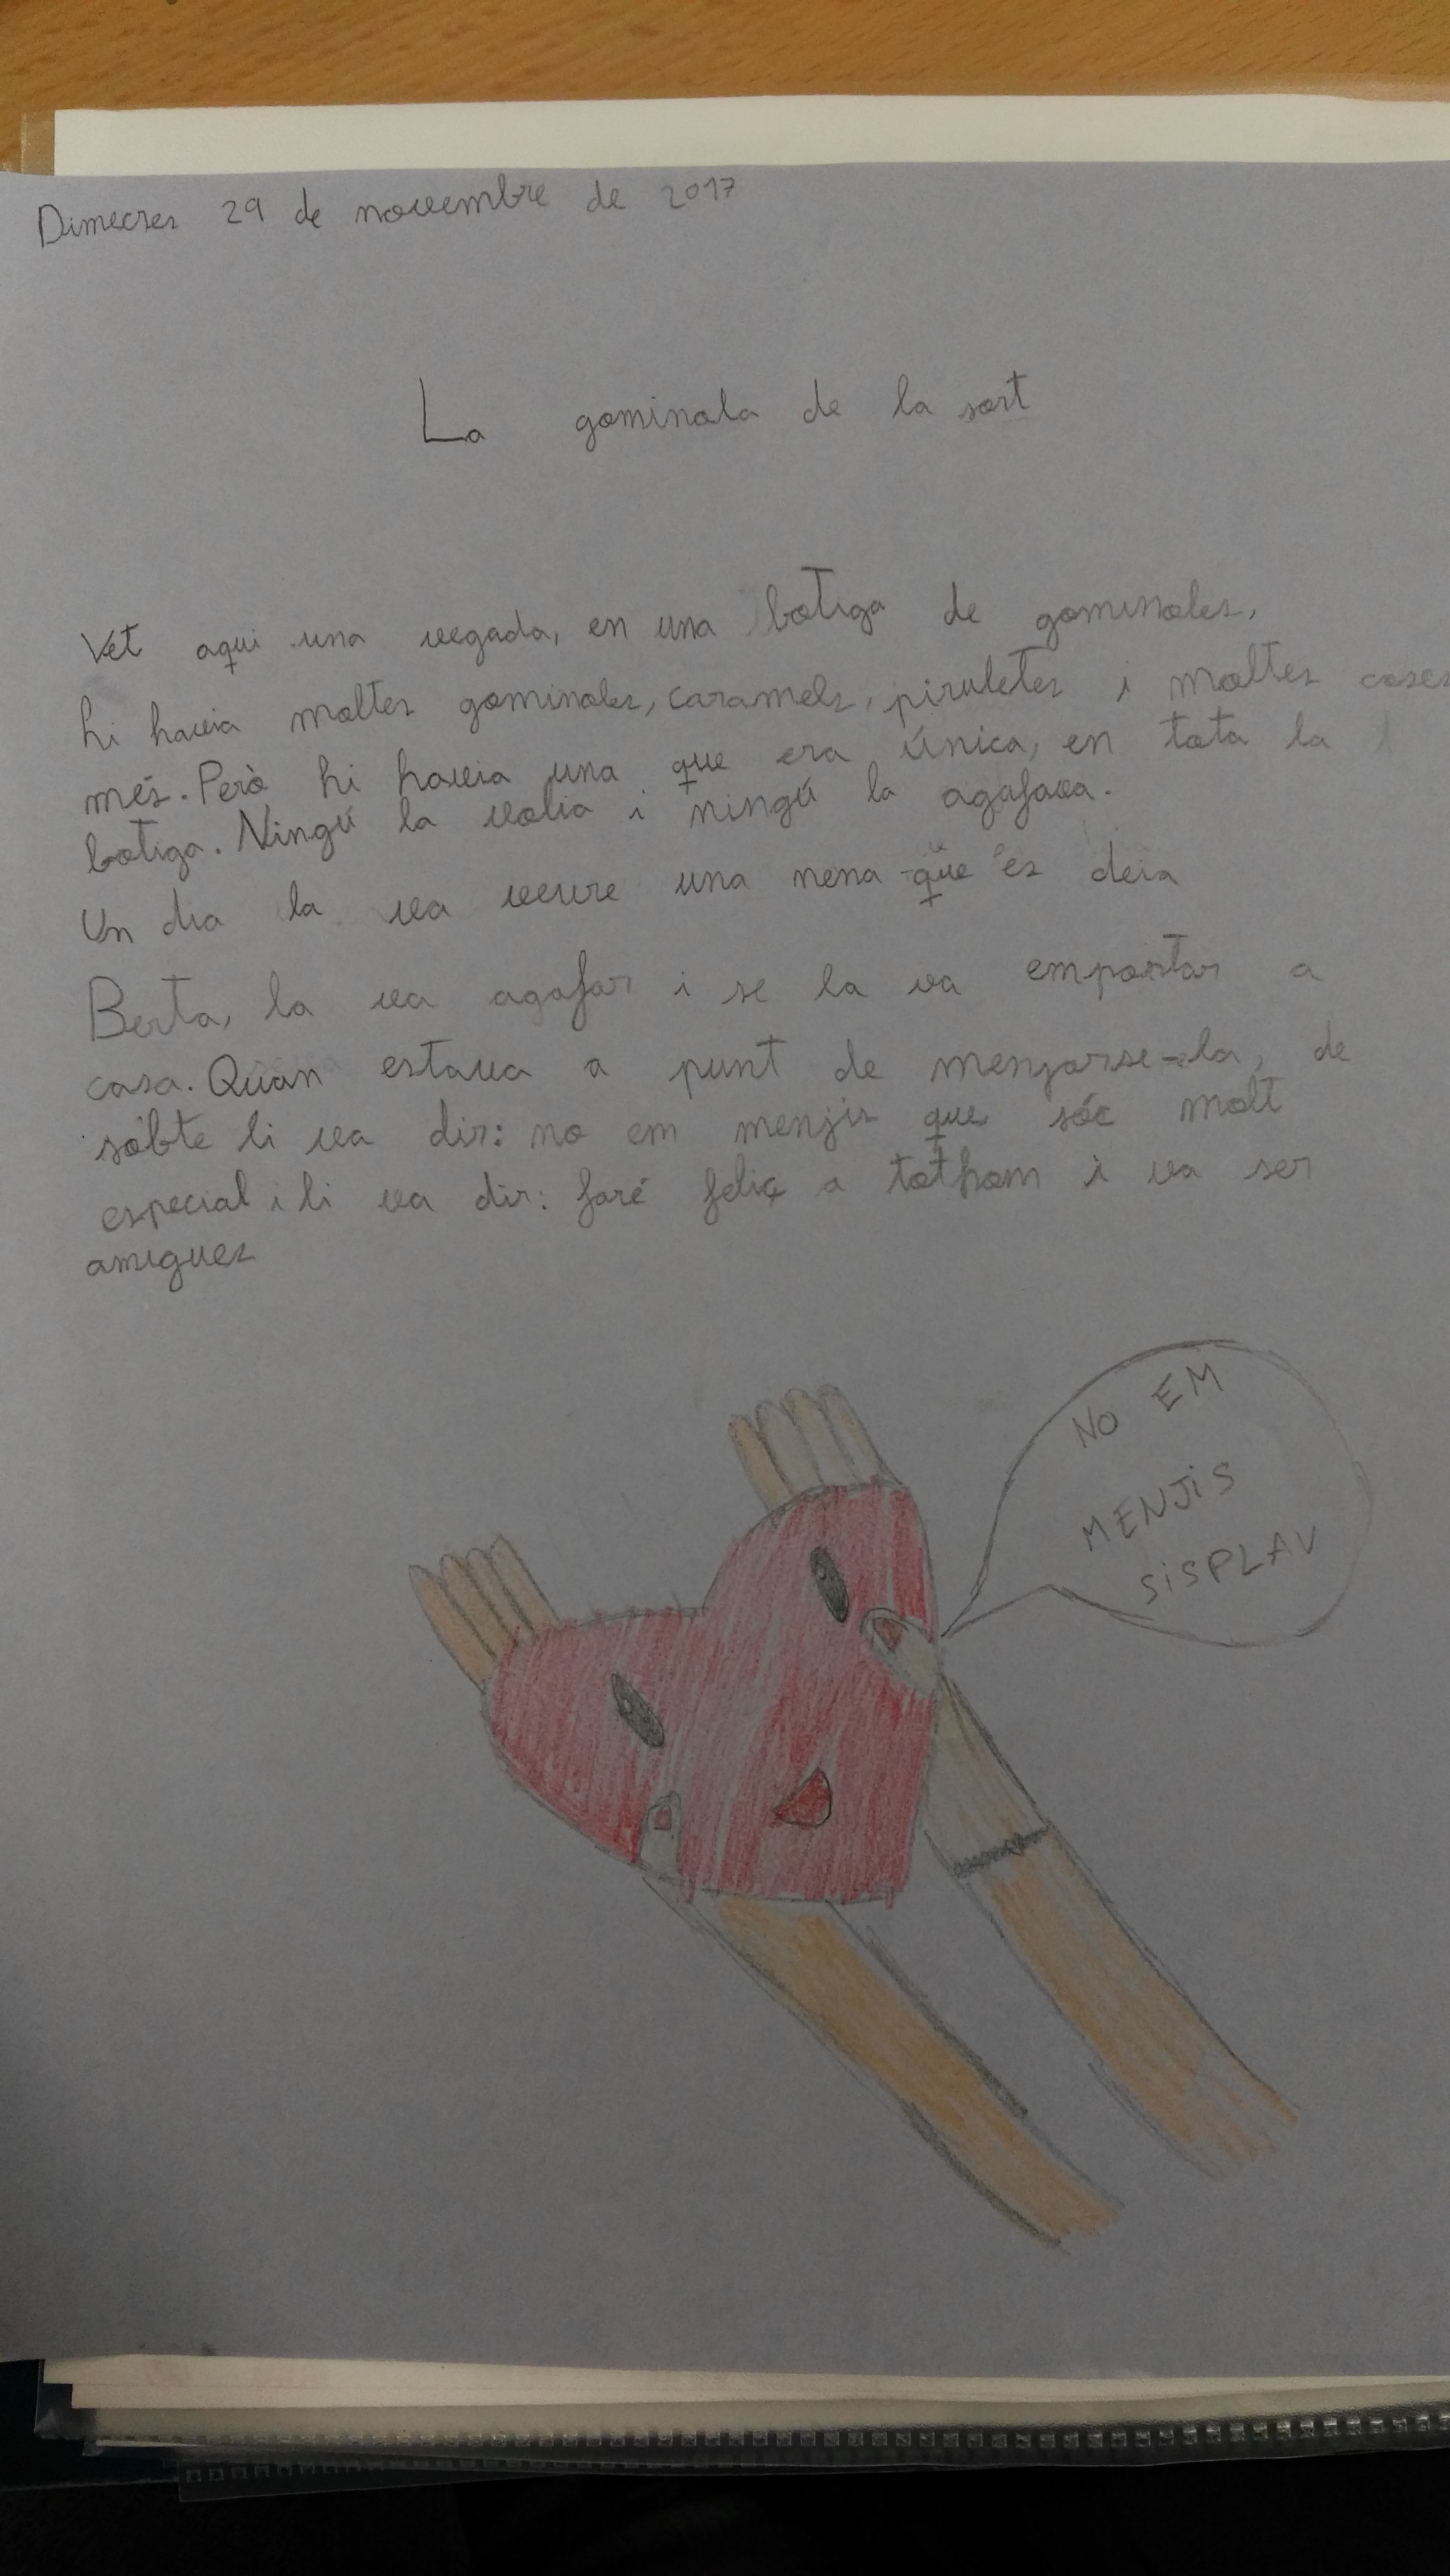 Dimecres 29 de novembre de 2017
La gominola de la sort
Vet aqui una vegada, en una botiga de gominoles,
hi havia moltes gominoles, caramels, piruletes i moltes coses
més. Però hi havia una que era única, en tota la
botiga. Ningú la volia i ningú la agafava.
Un dia la va veure una nena que es deia
Berta, la va agafar i se la va emportar a
casa. Quan estava a punt de menjarse-la, de
sobte li va dir: no em menjis que sóc molt
especial i li va dir: faré feliç a tothom i va ser
amigues
NO EM
MENJiS
SiSPLAU